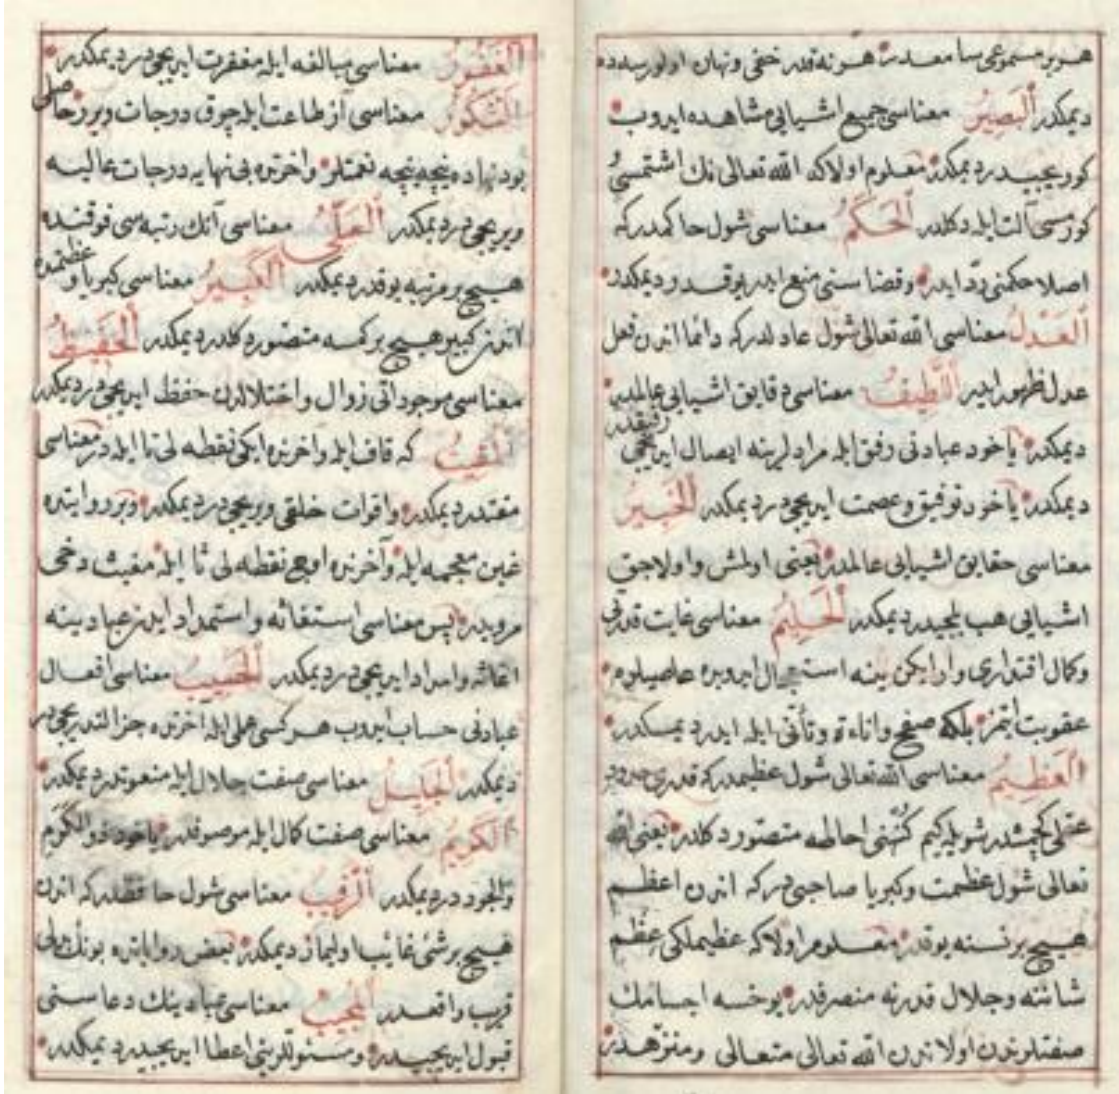 هر بر مسموعی سامعدر هر نه قدر خفی و نهان اولورسه ده
دیمكدر اَلْبَصِیرُ معناسی جمیع اشیایی مشاهده ایدوب
كوریجیدر دیمكدر معلوم اولاكه الله تعالی نك اشتمسی و
كورمسی آلت ایله دكلدر اَلْحَكَمُ معناسی شول حاكمدركه
اصلا حكمنی رد ایدر و قضاسنی منع ایدر یوقدر دیمكدر
اَلْعَدْلُ معناسی الله تعالی شول عادلدركه دائما اندن فعل
عدل ظهور ایدر اَللَّطِیفُ معناسی دقایق اشیایی عالمدر
دیمكدر یاخود عبادنی رفق ایله مرادلرینه ایصال ایدیجی
دیمكدر یاخود توفیق و عصمت ایدیجیدر دیمكدر اَلْخَبِیرُ
معناسی حقایق اشیایی عالمدر یعنی اولمش و اولاجق
اشیایی هب بلیجیدر دیمكدر اَلْحَلِیمُ معناسی غایت قدرتی
و كمال اقتداری وار ایكن ینه استعجال ایدوبده عاصیلره
عقوبت ایتمز بلكه صفح و اناءة و تأنی ایله ایدر دیمكدر
اَلْعَظِیمُ معناسی الله تعالی شول عظیمدركه قدری حدود
عقلی كچمشدر شویله كیم كُنْهنی احاطه متصور دكلدر یعنی الله
تعالی شول عظمت و كبریا صاحبیدركه اندن اعظم
هیچ بر نسنه یوقدر معلوم اولاكه عظیملكی عظم
شاننه و جلال قدرنه منصرفدر یوخسه اجسامك
صفتلرندن اولاندن الله تعالی متعالی و منزهدر
اَلْغَفُورُ معناسی مبالغه ایله مغفرت ایدیجیدر دیمكدر
اَلشَّكُورُ معناسی آز طاعت ایله چوق درجات ویرر حاصلی
بو دنیاده نیجه نیجه نعمتلر و اخرتده بی نهایه درجات عالیه
ویریجیدر دیمكدر اَلْعَلِیُّ معناسی آنك رتبه سی فوقنده
هیچ بر مرتبه یوقدر دیمكدر اَلْكَبِیرُ معناسی كبریا و عظمتده
اندن كبیر هیچ بر كمسه متصور دكلدر دیمكدر اَلْحَفِیظُ
معناسی موجوداتی زوال و اختلالدن حفظ ایدیجیدر دیمكدر
اَلْمُقِیتُ كه قاف ایله و اخرنده ایكی نقطه لی تا ایله در معناسی
مقتدر دیمكدر و اقوات خلقی ویریجیدر دیمكدر و بر روایتده
غین معجمه ایله و آخرنده اوچ نقطه لی ثا ایله مغیث دخی
مرویدر پس معناسی استغاثه و استمداد ایدن عبادینه
اغاثه و امداد ایدیجیدر دیمكدر اَلْحَسِیبُ معناسی افعال
عبادنی حساب ایدوب هر كسی عملی ایله آخرتده جزالندریجیدر
دیمكدر اَلْجَلِیلُ معناسی صفت جلال ایله منعوتدر دیمكدر
اَلْكَرِیمُ معناسی صفت كمال ایله موصوفدر یاخود ذو الكرم
والجود در دیمكدر اَلرَّقِیبُ معناسی شول حافظدركه اندن
هیچ بر شئ غایب اولیماز دیمكدر بعض روایاتده بونك
قریب واقعدر اَلْمُجِیبُ معناسی عبادینك دعاسنی
قبول ایدیجیدر و مسئوللرینی اعطا ایدیجیدر دیمكدر